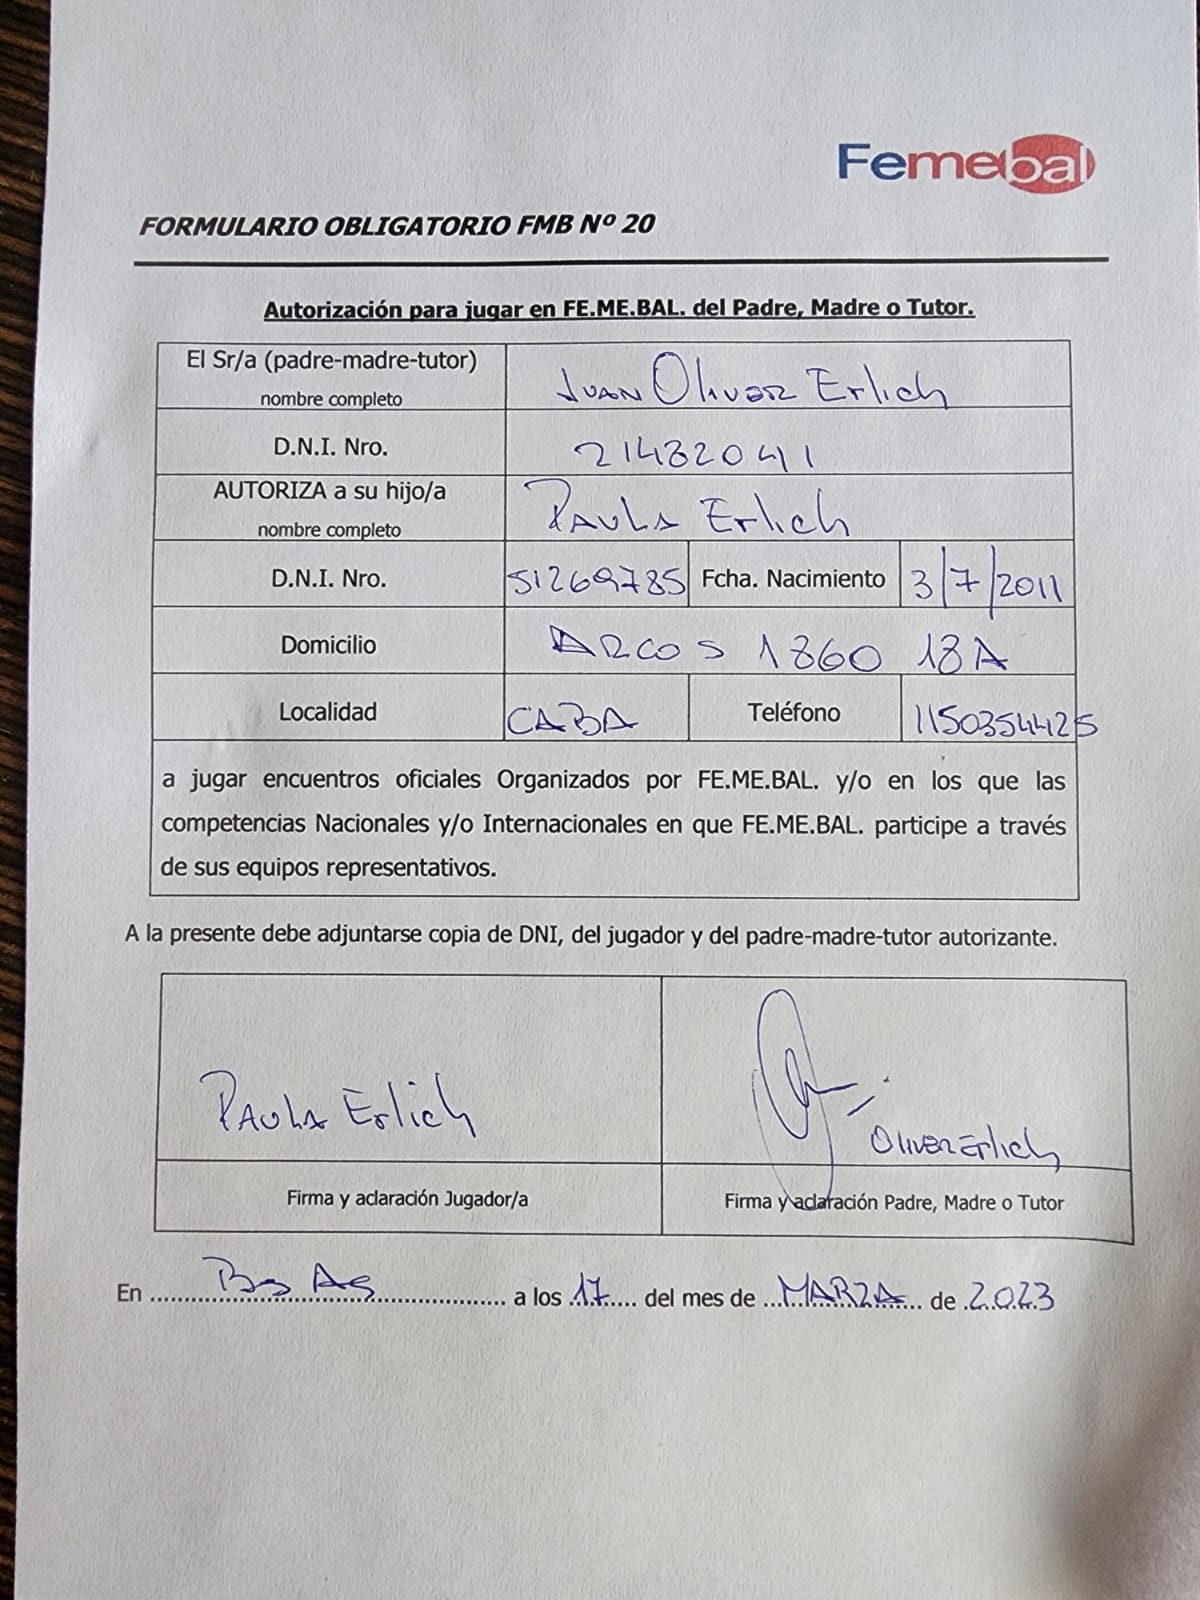 Femebal
FORMULARIO OBLIGATORIO FMB Nº 20
Autorización para jugar en FE.ME.BAL. del Padre, Madre o Tutor.
El Sr/a (padre-madre-tutor)
nombre completo
Juan Oliver Erlich
D.N.I. Nro.
21482041
AUTORIZA a su hijo/a
nombre completo
Paula Erlich
D.N.I. Nro. 51269785 Fcha. Nacimiento 3/7/2011
Domicilio ARCOS 1860 18A
Localidad CABA Teléfono 1150354425
a jugar encuentros oficiales Organizados por FE.ME.BAL. y/o en los que las
competencias Nacionales y/o Internacionales en que FE.ME.BAL. participe a través
de sus equipos representativos.
A la presente debe adjuntarse copia de DNI, del jugador y del padre-madre-tutor autorizante.
Paula Erlich
Oliver Erlich
Firma y aclaración Jugador/a
Firma y aclaración Padre, Madre o Tutor
En Bs As a los 17 del mes de MARZA de 2023